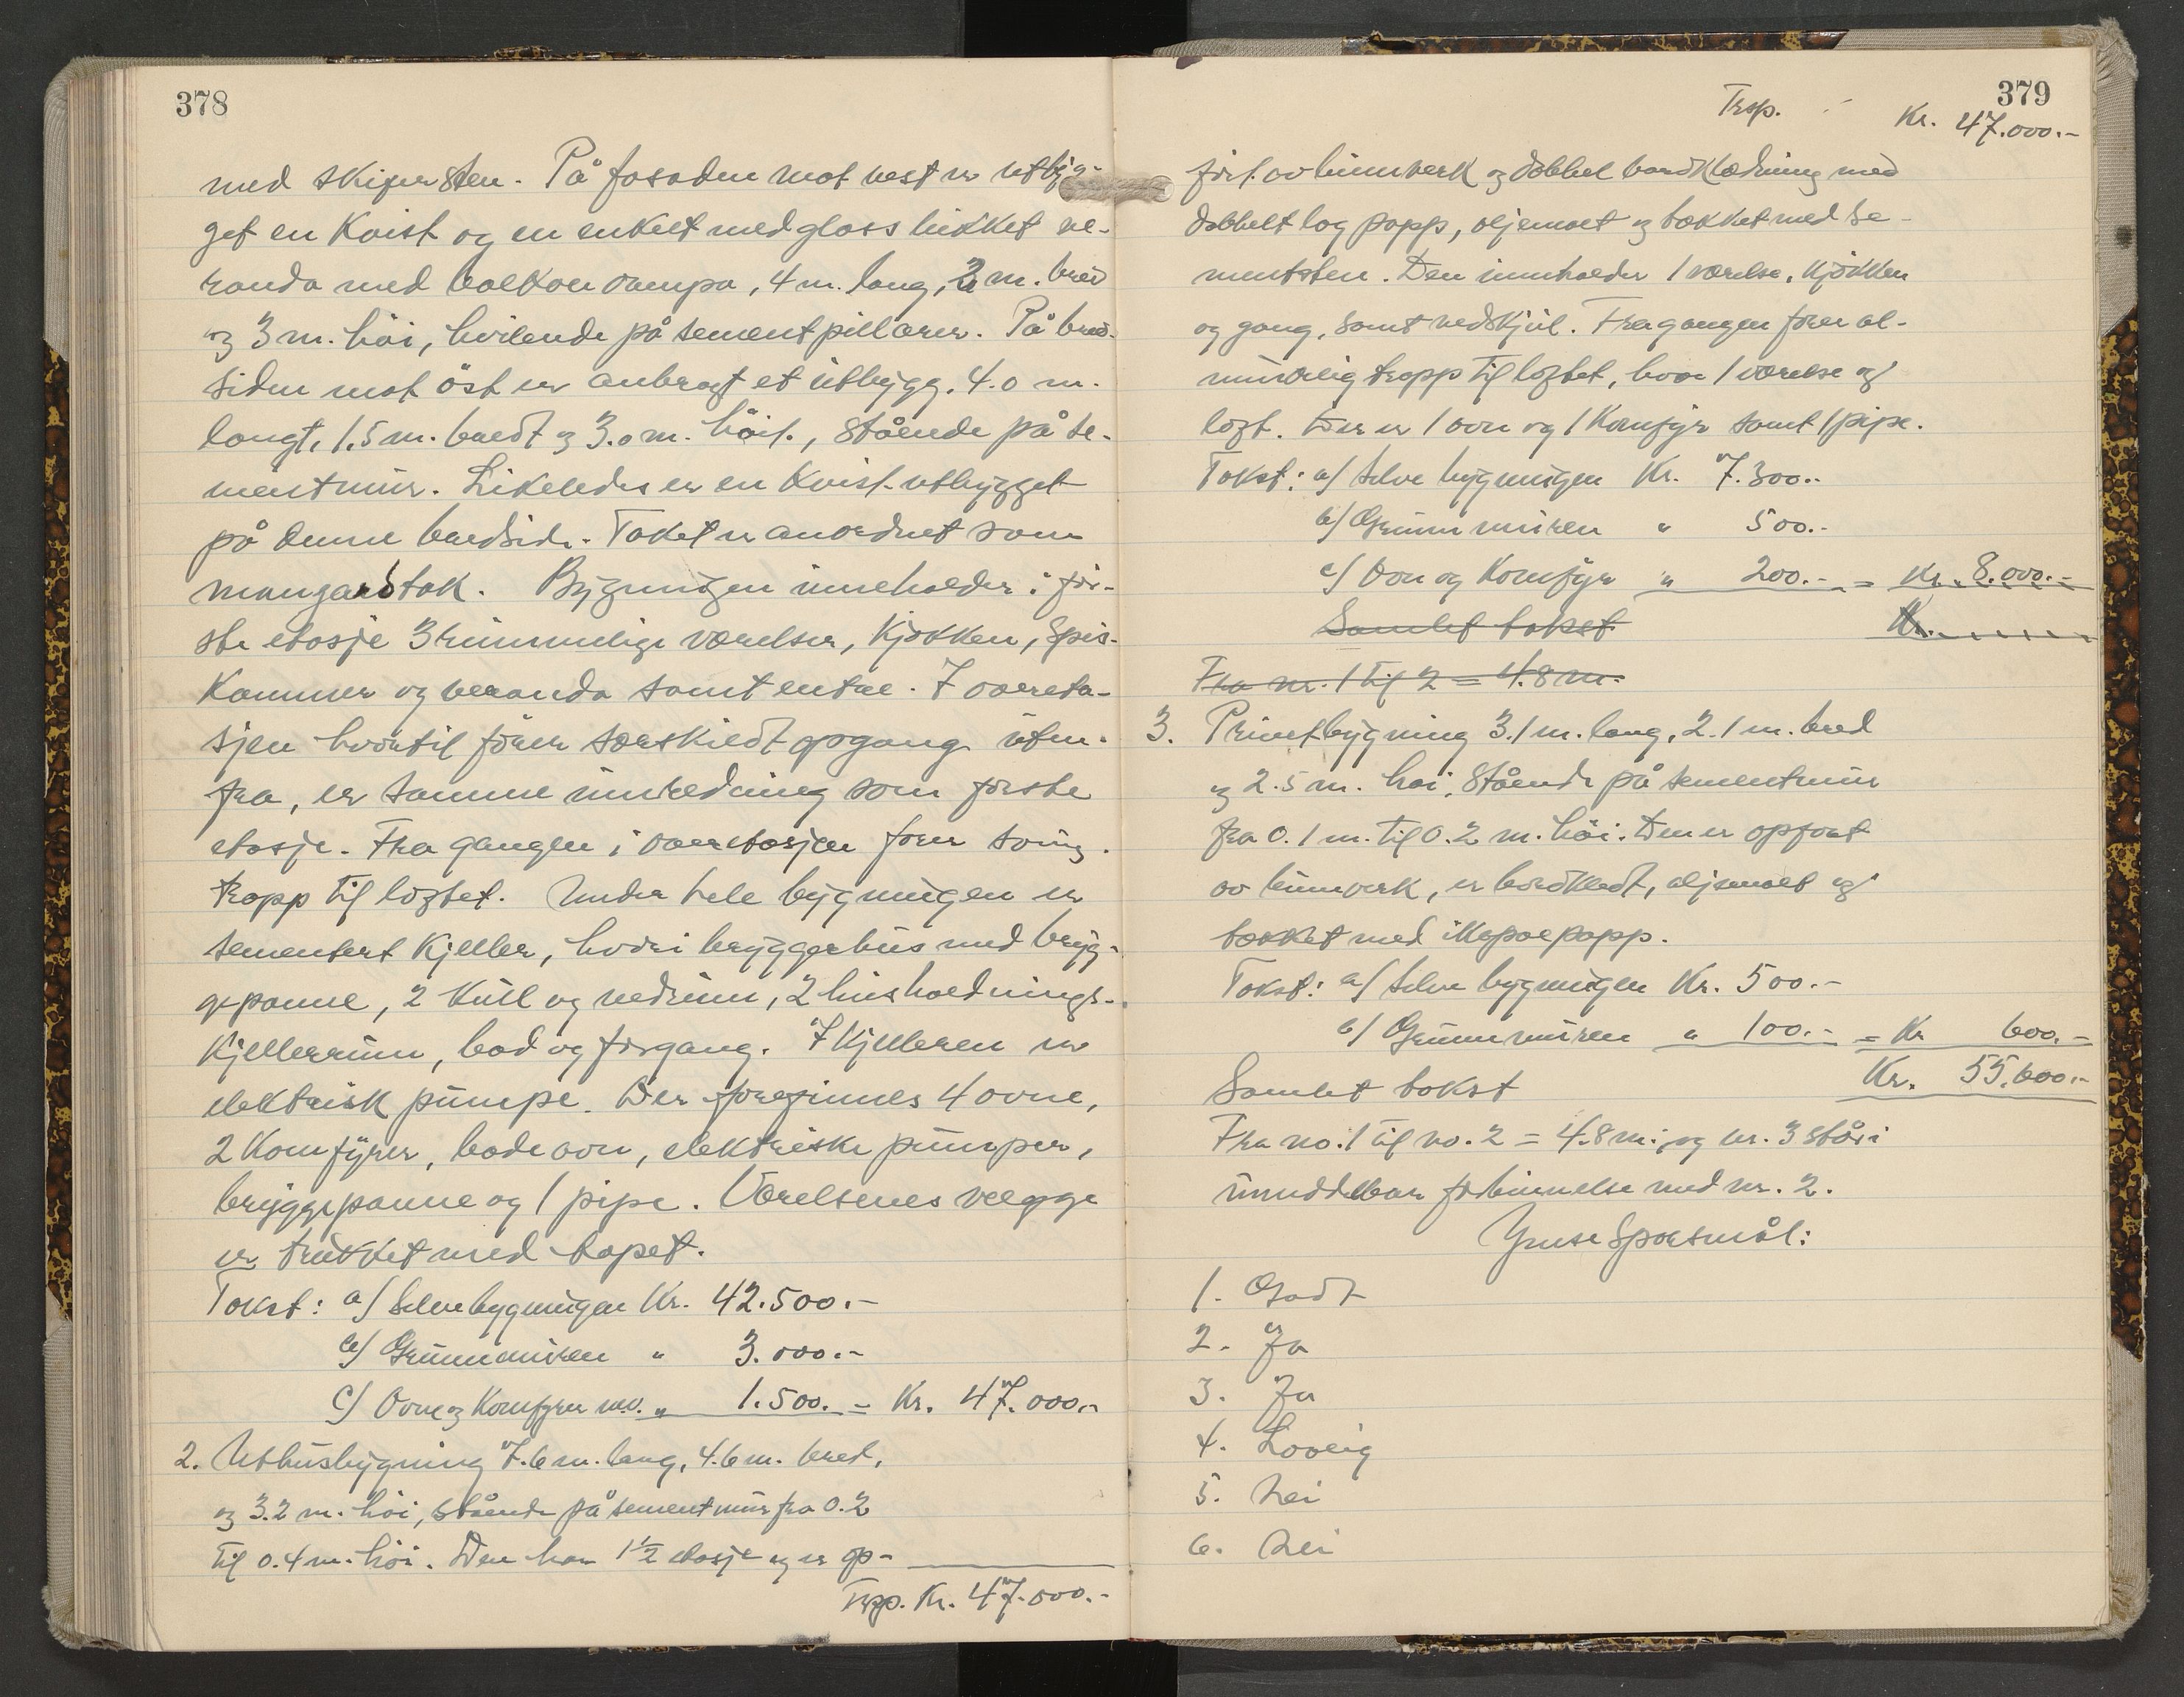 378
med skifersten. På fasaden mot vest er utbyg-
get en Kvist og en enkelt med glass lukket ve-
randa med balkon oampa, 4 m. lang, 2 m. bred
og 3 m. höi, hvilende på sementpillarer. På bred-
siden mot öst er anbragt et utbygg, 4.0 m.
langt, 1.5 m. bredt og 3.0 m. höit, stående på se-
mentmur. Likeledes er en Kvist utbygget
på denne bredside. Taket er anordnet som
mangardtak. Bygningen inneholder i för-
ste etasje 3 rummelige værelser, Kjökken, Spis-
kammer og veranda samt entre. I overeta-
sjen hvortil förer særskiedt opgang uten-
fra, er samme innredning som förste
etasje. Fra gangen i overetasjen förer sving-
tropp til loftet. Under hele bygningen er
sementert Kjeller, hvori bryggerhus med bryg-
gepanne, 2 Kull og vedrum, 2 husholdnings-
Kjellerrum, bad og forgang. I Kjelleren er
elektrisk pumpe. Der forefinnes 4 ovne,
2 Komfyrer, badeovn, elektriske pumper,
bryggepanne og 1 pipe. Værelsenes vegge
er trukket med tapet.
Takst: a/ Selve bygningen Kr. 42.500.-
b/ Grunnmuren " 3.000.-
c/ Ovne og Komfyrer m.v. " 1.500.- = Kr. 47.000.-
2. Uthusbygning 7.6 m. lang, 4.6 m. bred,
og 3.2 m. höi, stående på sementmur fra 0.2
til 0.4 m. höi. Den har 1½ etasje og er op-
Trsp. Kr. 47.000.-
379
Trsp. Kr. 47.000.-
fört av binnverk og dobbel bordklædning med
dobbelt lag papp, oljemalt og tækket med se-
mentsten. Den inneholder 1 værelse, Kjökken
og gang, samt vedskjul. Fra gangen förer al-
mindelig tropp til loftet, hvor 1 værelse og
loft. Der er 1 ovn og 1 Komfyr samt 1 pipe.
Takst: a/ Selve bygningen Kr. 7.300.-
b/ Grunnmuren " 500.-
c/ Ovn og Komfyr " 200.- = Kr. 8.000.-
Samlet takst Kr.
Fra nr. 1 til 2 = 4.8 m.
3. Privetbygning 3.1 m. lang, 2.1 m. bred
og 2.5 m. höi, stående på sementmur
fra 0.1 m. til 0.2 m. höi. Den er opfört
av binnverk, er bordkledt, oljemalt og
tækket med papp.
Takst: a/ Selve bygningen Kr. 500.-
b/ Grunnmuren " 100.- = Kr 600.-
Samlet takst Kr. 55.600.-
Fra no. 1 til no. 2 = 4.8 m., og nr. 3 står i
umiddelbar forbinnelse med nr. 2.
Ymse Spörsmål:
1. Godt
2. Ja
3. Ja
4. Lovlig
5. Nei
6. Nei